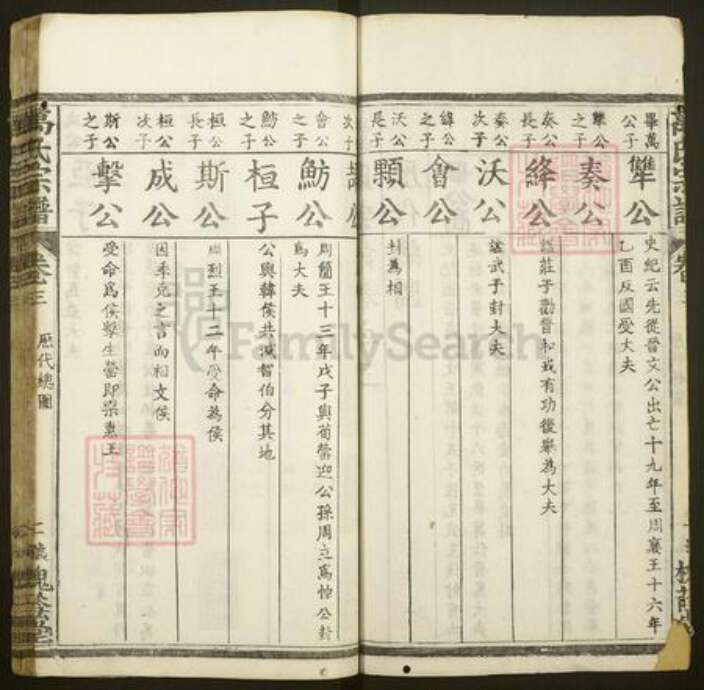 畢萬
公子
犨公
史紀云先從晉文公出亡十九年至周襄王十六年
乙酉反國受大夫
犨公
之子
奏公
奏公
長子
絳公
莊子勸晉和戎有功後舉為大夫
奏公
次子
沃公
諡武子封大夫
絳公
之子
會公
沃公
長子
顆公
封為相
次子
會公
之子
魴公
周簡王十三年戊子與荀罃迎公孫周立為悼公封
為大夫
魴公
之子
桓子
公與韓侯共滅智伯分其地
桓公
長子
斯公
烈王十二年受命為侯
桓公
次子
成公
因季克之言而相文侯
斯公
之子
擊公
受命為侯擊生罃即梁惠王
萬氏宗譜
卷三
歷代總圖
二
槐蔭堂
FamilySearch